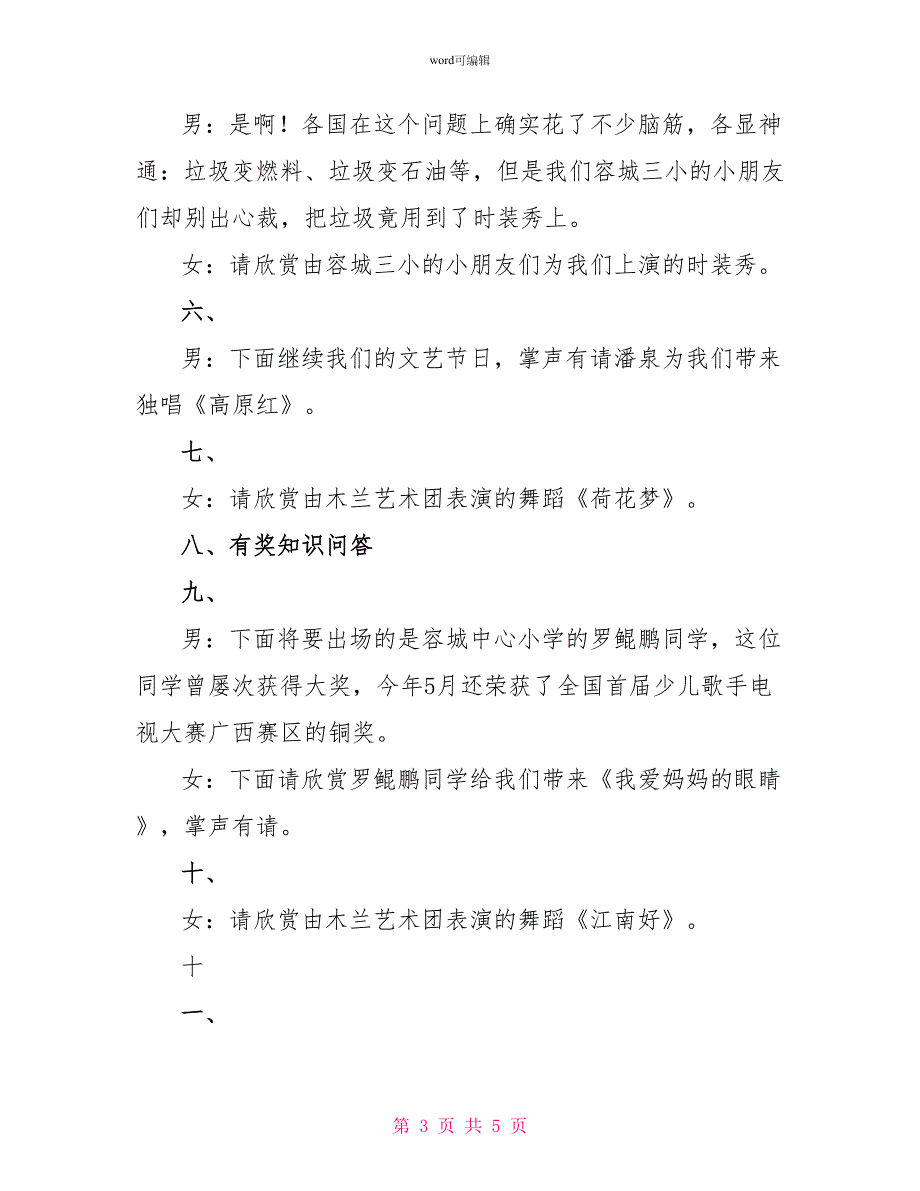 word可编辑
男：是啊！各国在这个问题上确实花了不少脑筋，各显神
通：垃圾变燃料、垃圾变石油等，但是我们容城三小的小朋友
们却别出心裁，把垃圾竟用到了时装秀上。
女：请欣赏由容城三小的小朋友们为我们上演的时装秀。
六、
男：下面继续我们的文艺节日，掌声有请潘泉为我们带来
独唱《高原红》。
七、
女：请欣赏由木兰艺术团表演的舞蹈《荷花梦》。
八、有奖知识问答
九、
男：下面将要出场的是容城中心小学的罗鲲鹏同学，这位
同学曾屡次获得大奖，今年5月还荣获了全国首届少儿歌手电
视大赛广西赛区的铜奖。
女：下面请欣赏罗鲲鹏同学给我们带来《我爱妈妈的眼睛
》，掌声有请。
十、
女：请欣赏由木兰艺术团表演的舞蹈《江南好》。
十
一、
第 3 页 共 5 页